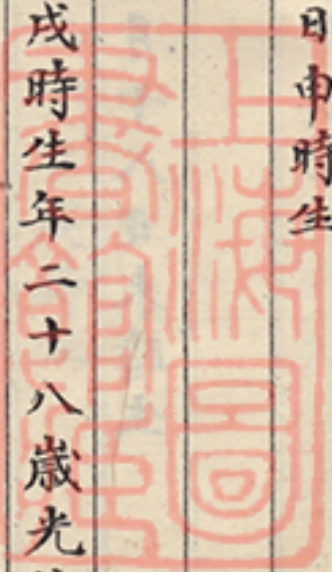 日申時生
戌時生年二十八歲光
上海圖書館藏